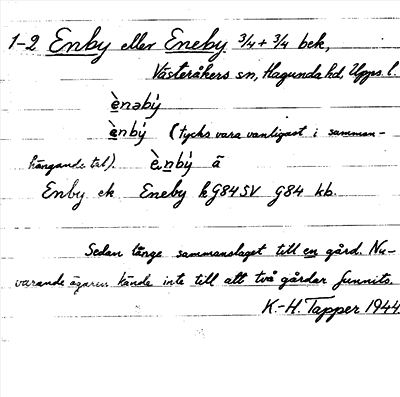 1-2 Enby eller Eneby 3/4 + 3/4 bek,
Västeråkers sn, Hagunda hd, Upps. l.
ènəbý
ènbý (tycks vara vanligast i samman-
hängande tal). è.nbý ä
Enby ek Eneby k G84 SV G84 kb.
Sedan länge sammanslaget till en gård. Nu-
varande ägaren kände inte till att två gårdar funnits.
K.-H. Tapper 1944